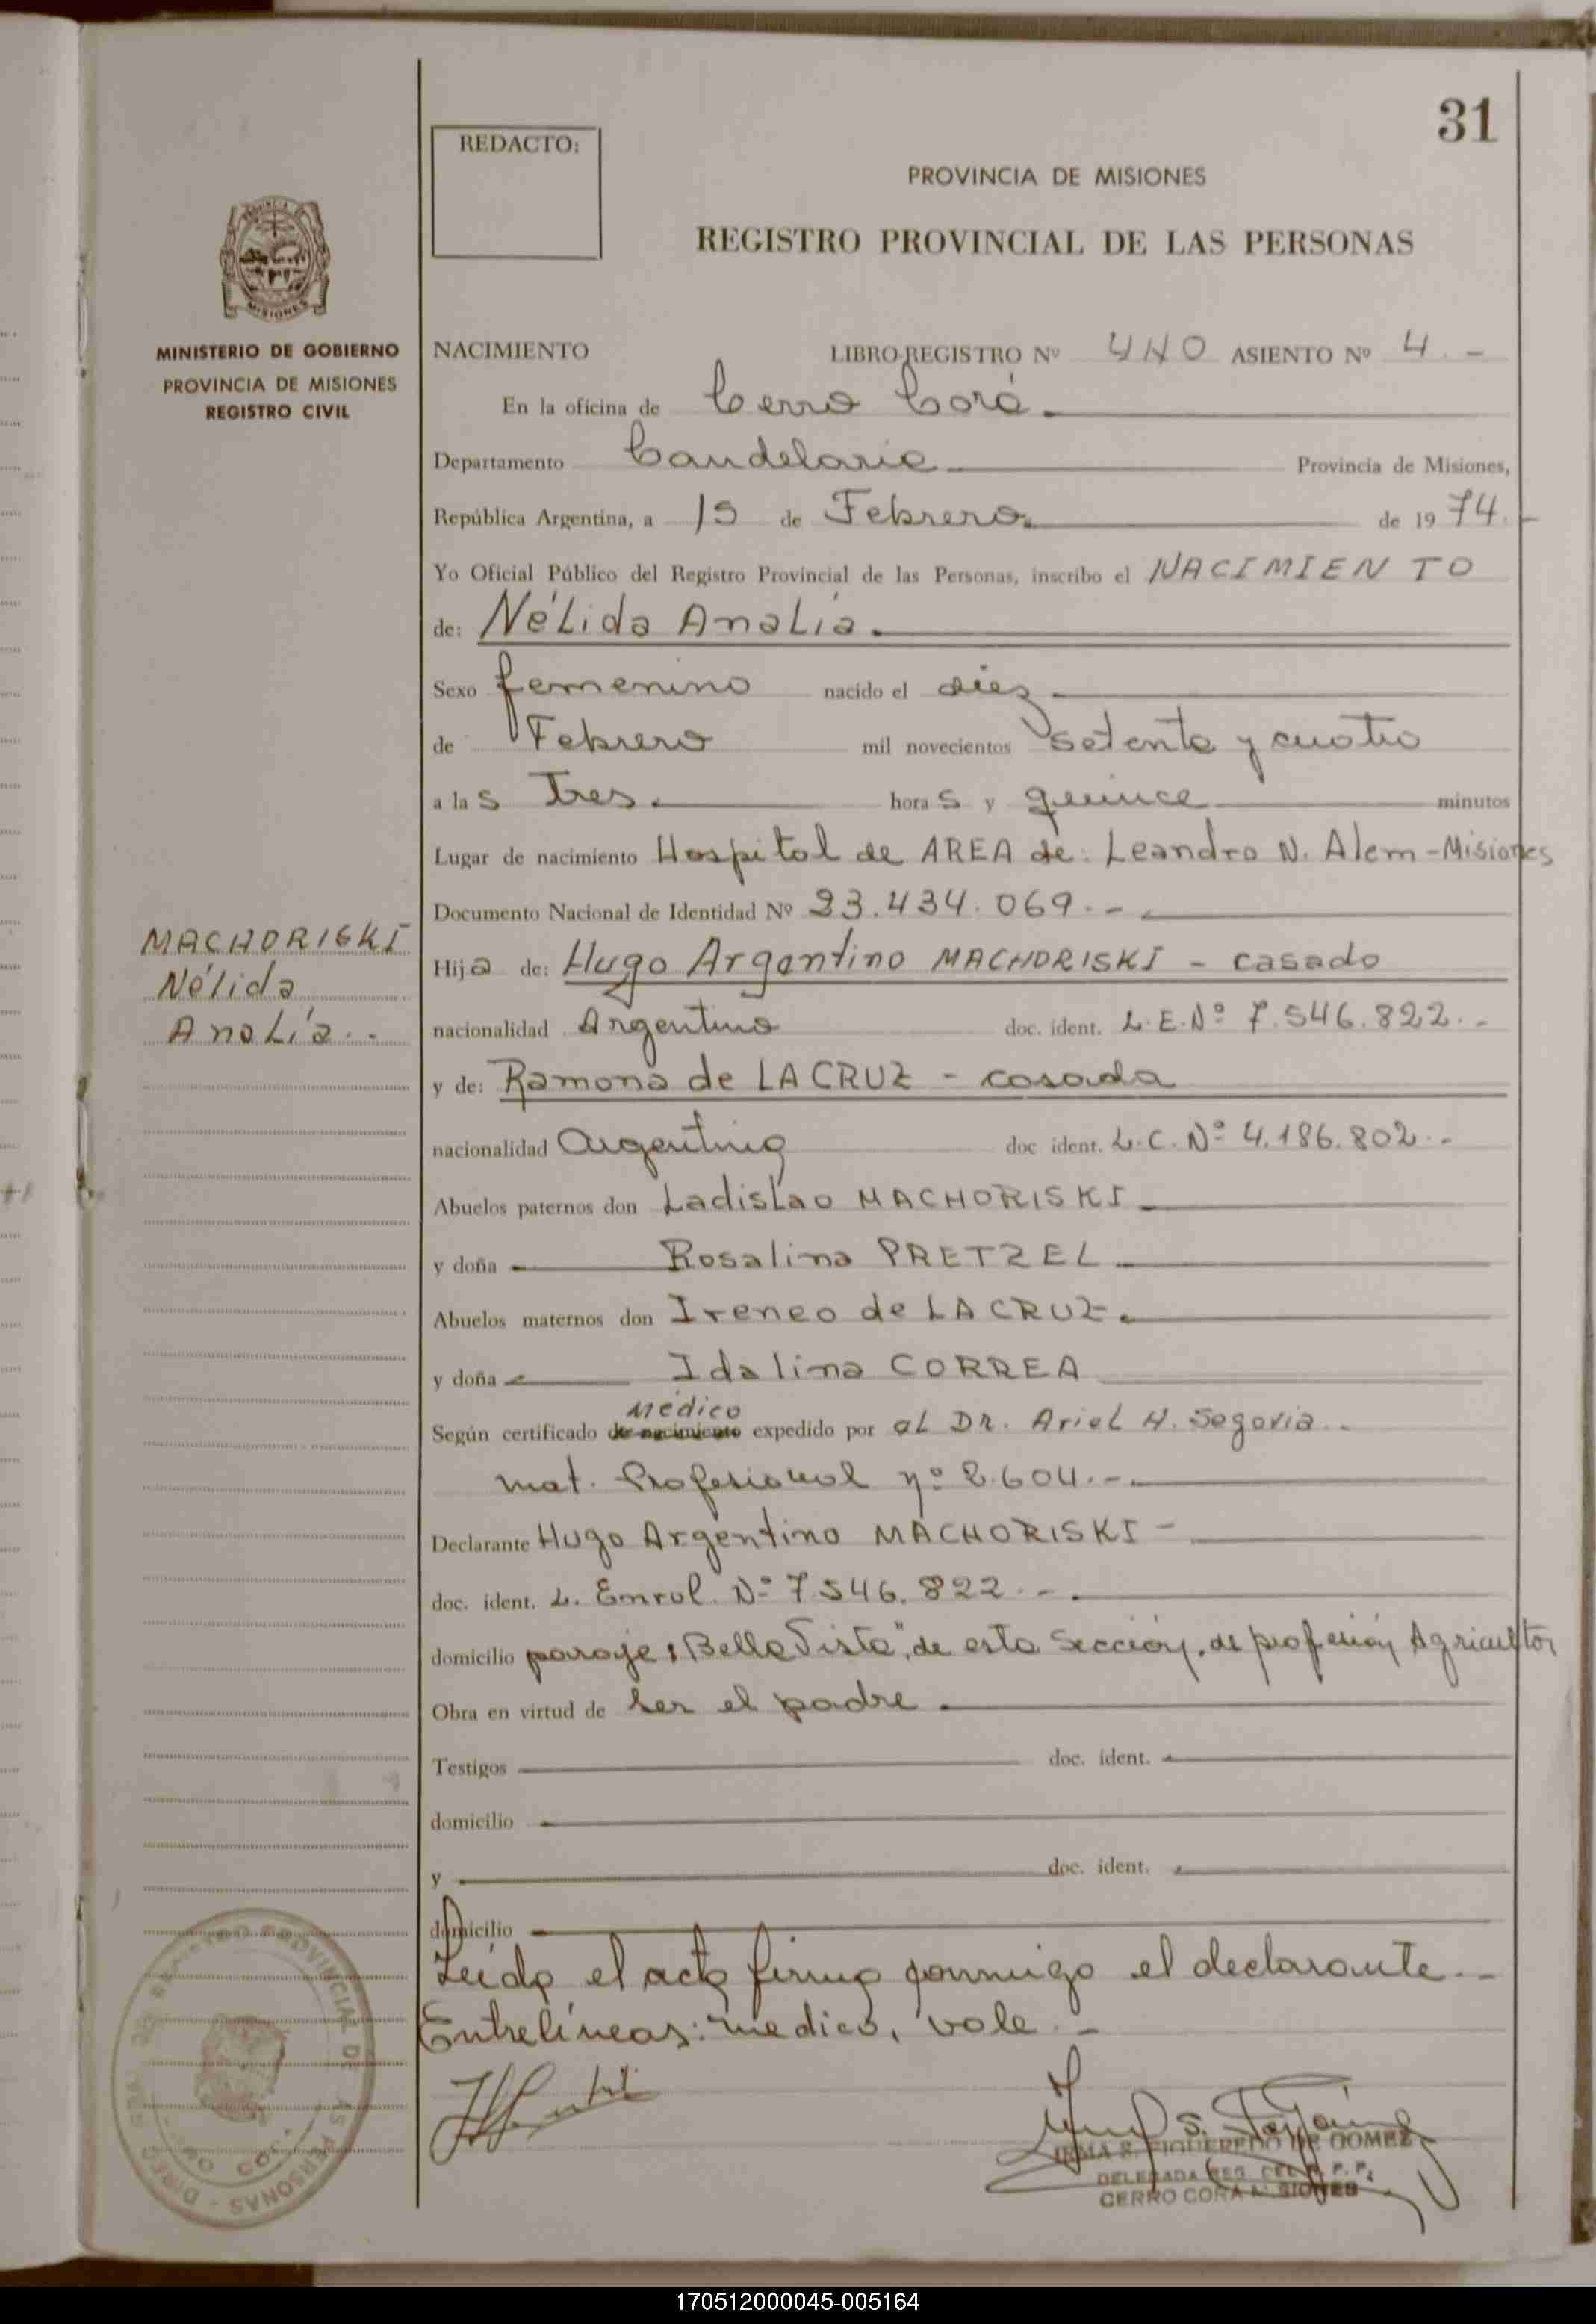 31
REDACTO:
PROVINCIA DE MISIONES
REGISTRO PROVINCIAL DE LAS PERSONAS
MISIONES
MINISTERIO DE GOBIERNO
PROVINCIA DE MISIONES
REGISTRO CIVIL
NACIMIENTO LIBRO REGISTRO Nº UNO ASIENTO Nº 4.-
En la oficina de Cerro Corá.
Departamento Candelaria Provincia de Misiones,
República Argentina, a 15 de Febrero. de 1974.-
Yo Oficial Público del Registro Provincial de las Personas, inscribo el NACIMIENTO
de: Nélida Analía.
Sexo femenino nacido el diez
de Febrero mil novecientos setenta y cuatro
a las Tres. horas y quince minutos
Lugar de nacimiento Hospital de AREA de: Leandro N. Alem-Misiones
Documento Nacional de Identidad Nº 23.434.069.-
MACHORISKI
Nélida
Analía.-
Hija de: Hugo Argentino MACHORISKI - casado
nacionalidad Argentino doc. ident. L.E.Nº 7.546.822.-
y de: Ramona de LA CRUZ - casada
nacionalidad Argentina doc ident. L.C. Nº 4.186.802.-
Abuelos paternos don Ladislao MACHORISKI
y doña Rosalina PRETZEL
Abuelos maternos don Ireneo de LA CRUZ.
y doña Idalina CORREA
Médico
Según certificado de nacimiento expedido por al Dr. Ariel H. Segovia.-
mat. Profesional nº 2.604.-
Declarante Hugo Argentino MACHORISKI-
doc. ident. L. Enrol. Nº 7.546.822.-
domicilio paraje: "Bella Vista", de esta Sección, de profesión Agricultor
Obra en virtud de ser el padre.
Testigos doc. ident.
domicilio
y doc. ident.
domicilio
Leída el acta firma conmigo el declarante.-
Entrelíneas: medico, vale.-
IRMA S. FIGUEREDO DE GOMEZ
DELEGADA REG. DEL R. P. P.
CERRO CORA MISIONES
170512000045-005164